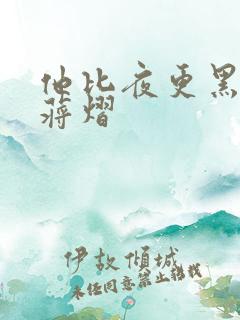 他比夜更黑
蒋熠
伊故倾城
未经同意禁止转载